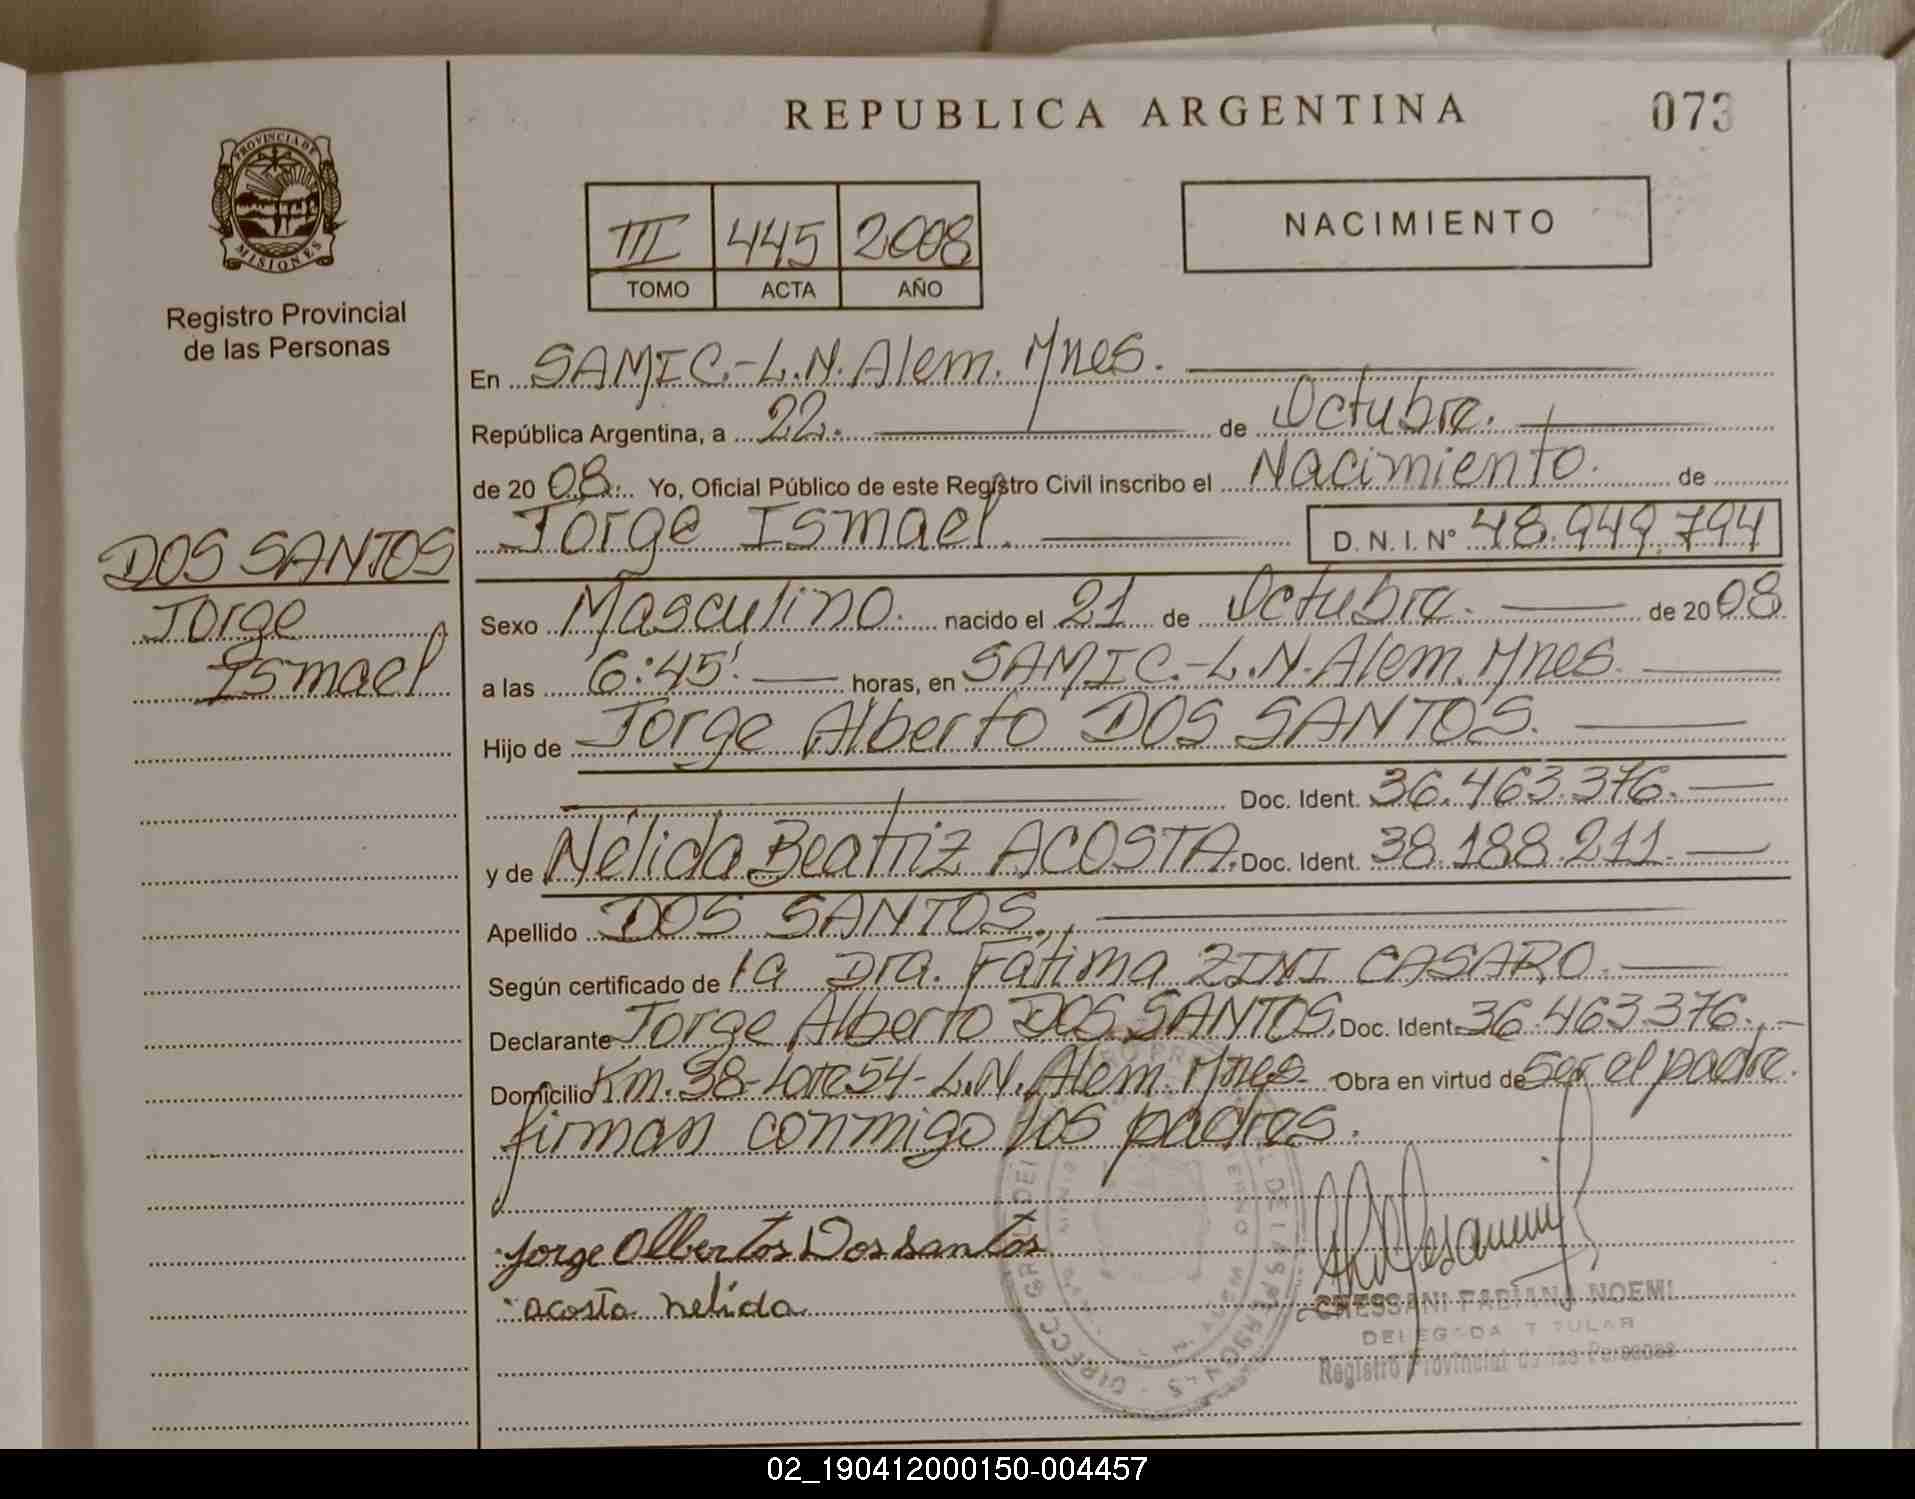 REPUBLICA ARGENTINA
073
PROVINCIA DE
MISIONES
Registro Provincial
de las Personas
III 445 2008
TOMO ACTA AÑO
NACIMIENTO
En SAMIC.-L.N.Alem. Mnes.
República Argentina, a 22. de Octubre.
de 20 08. Yo, Oficial Público de este Registro Civil inscribo el Nacimiento. de
Jorge Ismael. D. N. I. N° 48.949.794
DOS SANTOS
Jorge
Ismael
Sexo Masculino. nacido el 21 de Octubre. de 20 08
a las 6:45'. horas, en SAMIC.-L.N.Alem. Mnes.
Hijo de Jorge Alberto DOS SANTOS.
Doc. Ident. 36.463.376.
y de Nélida Beatriz ACOSTA. Doc. Ident. 38.188.211.
Apellido DOS SANTOS.
Según certificado de la Dra. Fátima ZINI CASARO.
Declarante Jorge Alberto DOS SANTOS. Doc. Ident. 36.463.376.
Domicilio Km. 38-Lote 54-L.N. Alem. Mnes. Obra en virtud de Ser el padre.
firman conmigo los padres.
Jorge Albertos Dos santos
acosta nelida
CHESSANI FABIANA NOEMI
DELEGADA TITULAR
Registro Provincial de las Personas
02_190412000150-004457